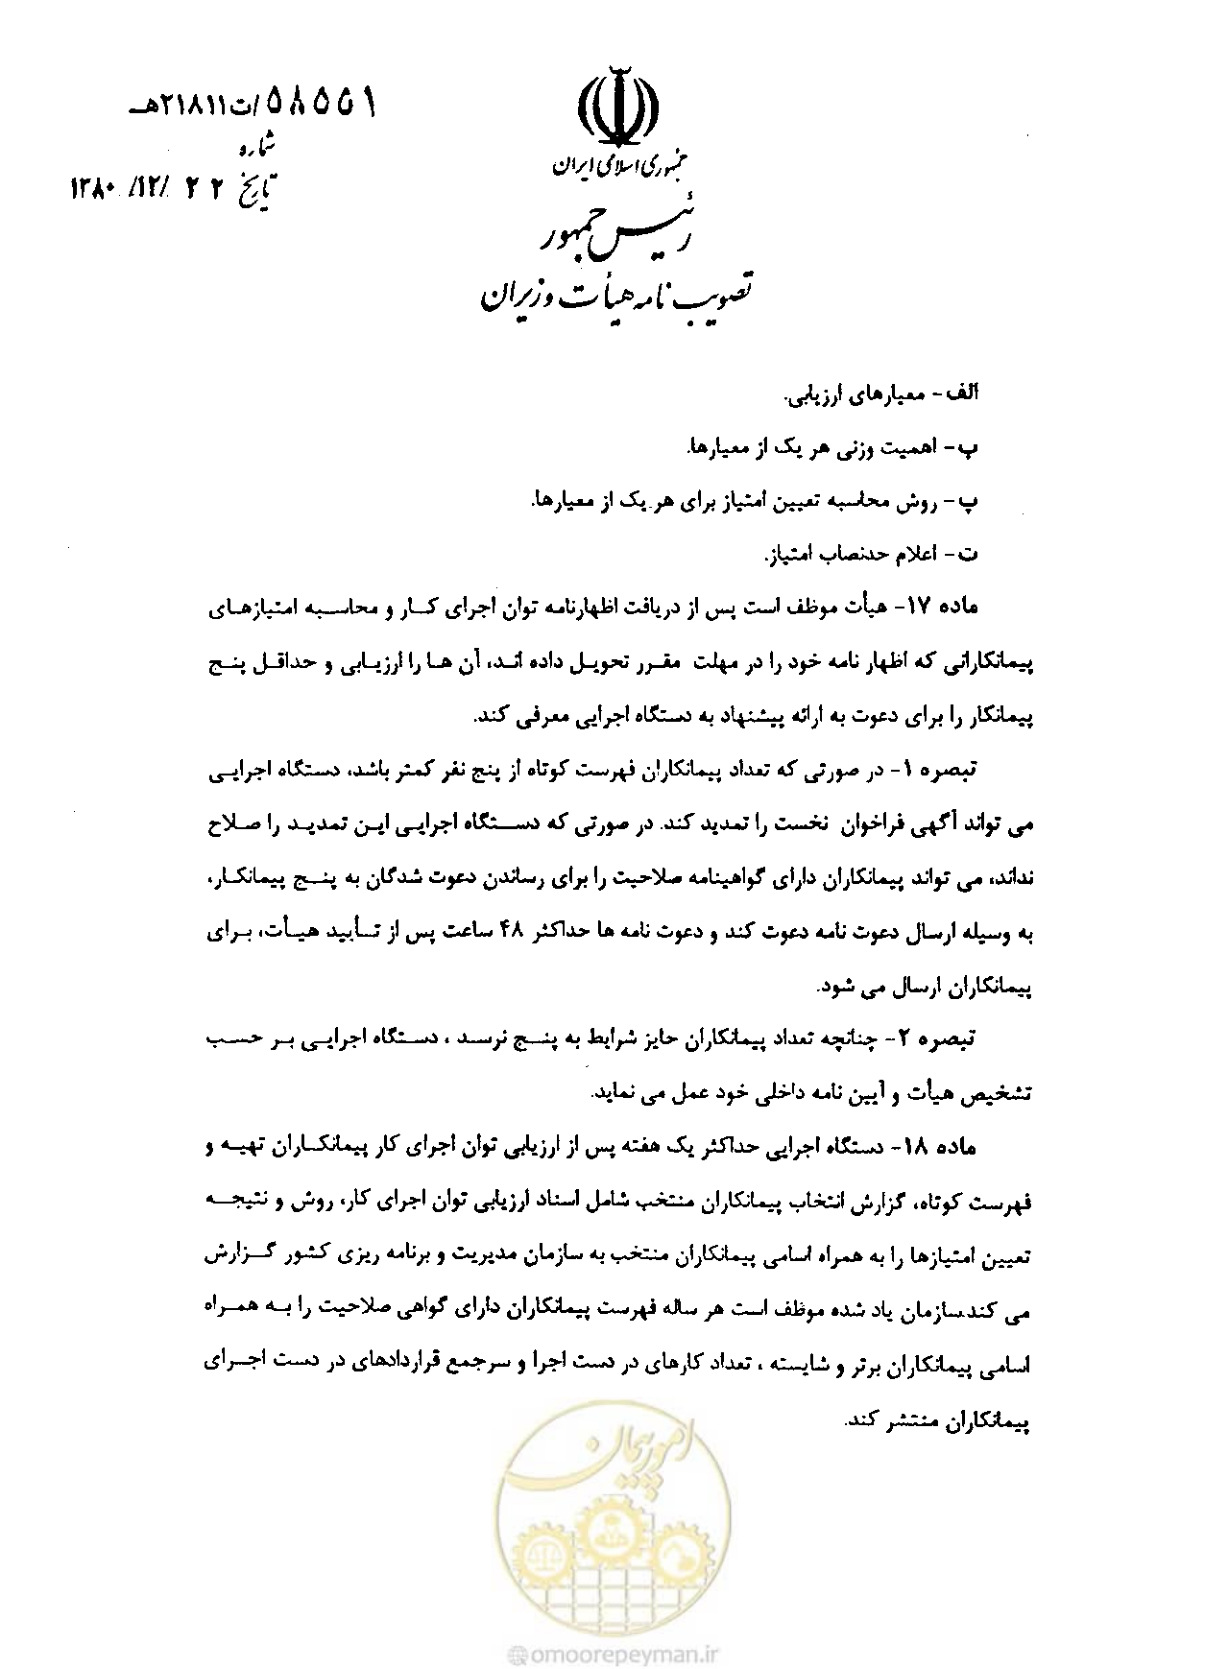 ۵۸۵۵۱/ت۲۱۸۱۱هـ
شماره
تاریخ ۲۲ /۱۲/ ۱۳۸۰
جمهوری اسلامی ایران
رئیس جمهور
تصویب نامه هیأت وزیران
الف - معیارهای ارزیابی.
پ- اهمیت وزنی هر یک از معیارها.
پ- روش محاسبه تعیین امتیاز برای هر یک از معیارها.
ت- اعلام حدنصاب امتیاز.
ماده ۱۷- هیأت موظف است پس از دریافت اظهارنامه توان اجرای کـار و محاسـبه امتیازهـای
پیمانکارانی که اظهار نامه خود را در مهلت مقـرر تحویـل داده انـد، آن هـا را ارزیـابی و حداقـل پنـج
پیمانکار را برای دعوت به ارائه پیشنهاد به دستگاه اجرایی معرفی کند.
تبصره ۱- در صورتی که تعداد پیمانکاران فهرست کوتاه از پنج نفر کمتر باشد، دستگاه اجرایـی
می تواند آگهی فراخوان نخست را تمدید کند. در صورتی که دسـتگاه اجرایـی ایـن تمدیـد را صـلاح
نداند، می تواند پیمانکاران دارای گواهینامه صلاحیت را برای رساندن دعوت شدگان به پنـج پیمانکـار،
به وسیله ارسال دعوت نامه دعوت کند و دعوت نامه ها حداکثر ۴۸ ساعت پس از تـأیید هیـأت، بـرای
پیمانکاران ارسال می شود.
تبصره ۲- چنانچه تعداد پیمانکاران حایز شرایط به پنـج نرسـد ، دسـتگاه اجرایـی بـر حسـب
تشخیص هیأت و آیین نامه داخلی خود عمل می نماید.
ماده ۱۸- دستگاه اجرایی حداکثر یک هفته پس از ارزیابی توان اجرای کار پیمانکـاران تهیـه و
فهرست کوتاه، گزارش انتخاب پیمانکاران منتخب شامل اسناد ارزیابی توان اجرای کار، روش و نتیجـه
تعیین امتیازها را به همراه اسامی پیمانکاران منتخب به سازمان مدیریت و برنامه ریزی کشور گـزارش
می کند.سازمان یاد شده موظف است هر ساله فهرست پیمانکاران دارای گواهی صلاحیت را بـه همـراه
اسامی پیمانکاران برتر و شایسته ، تعداد کارهای در دست اجرا و سرجمع قراردادهای در دست اجـرای
پیمانکاران منتشر کند.
امور پیمان
@omoorepeyman.ir